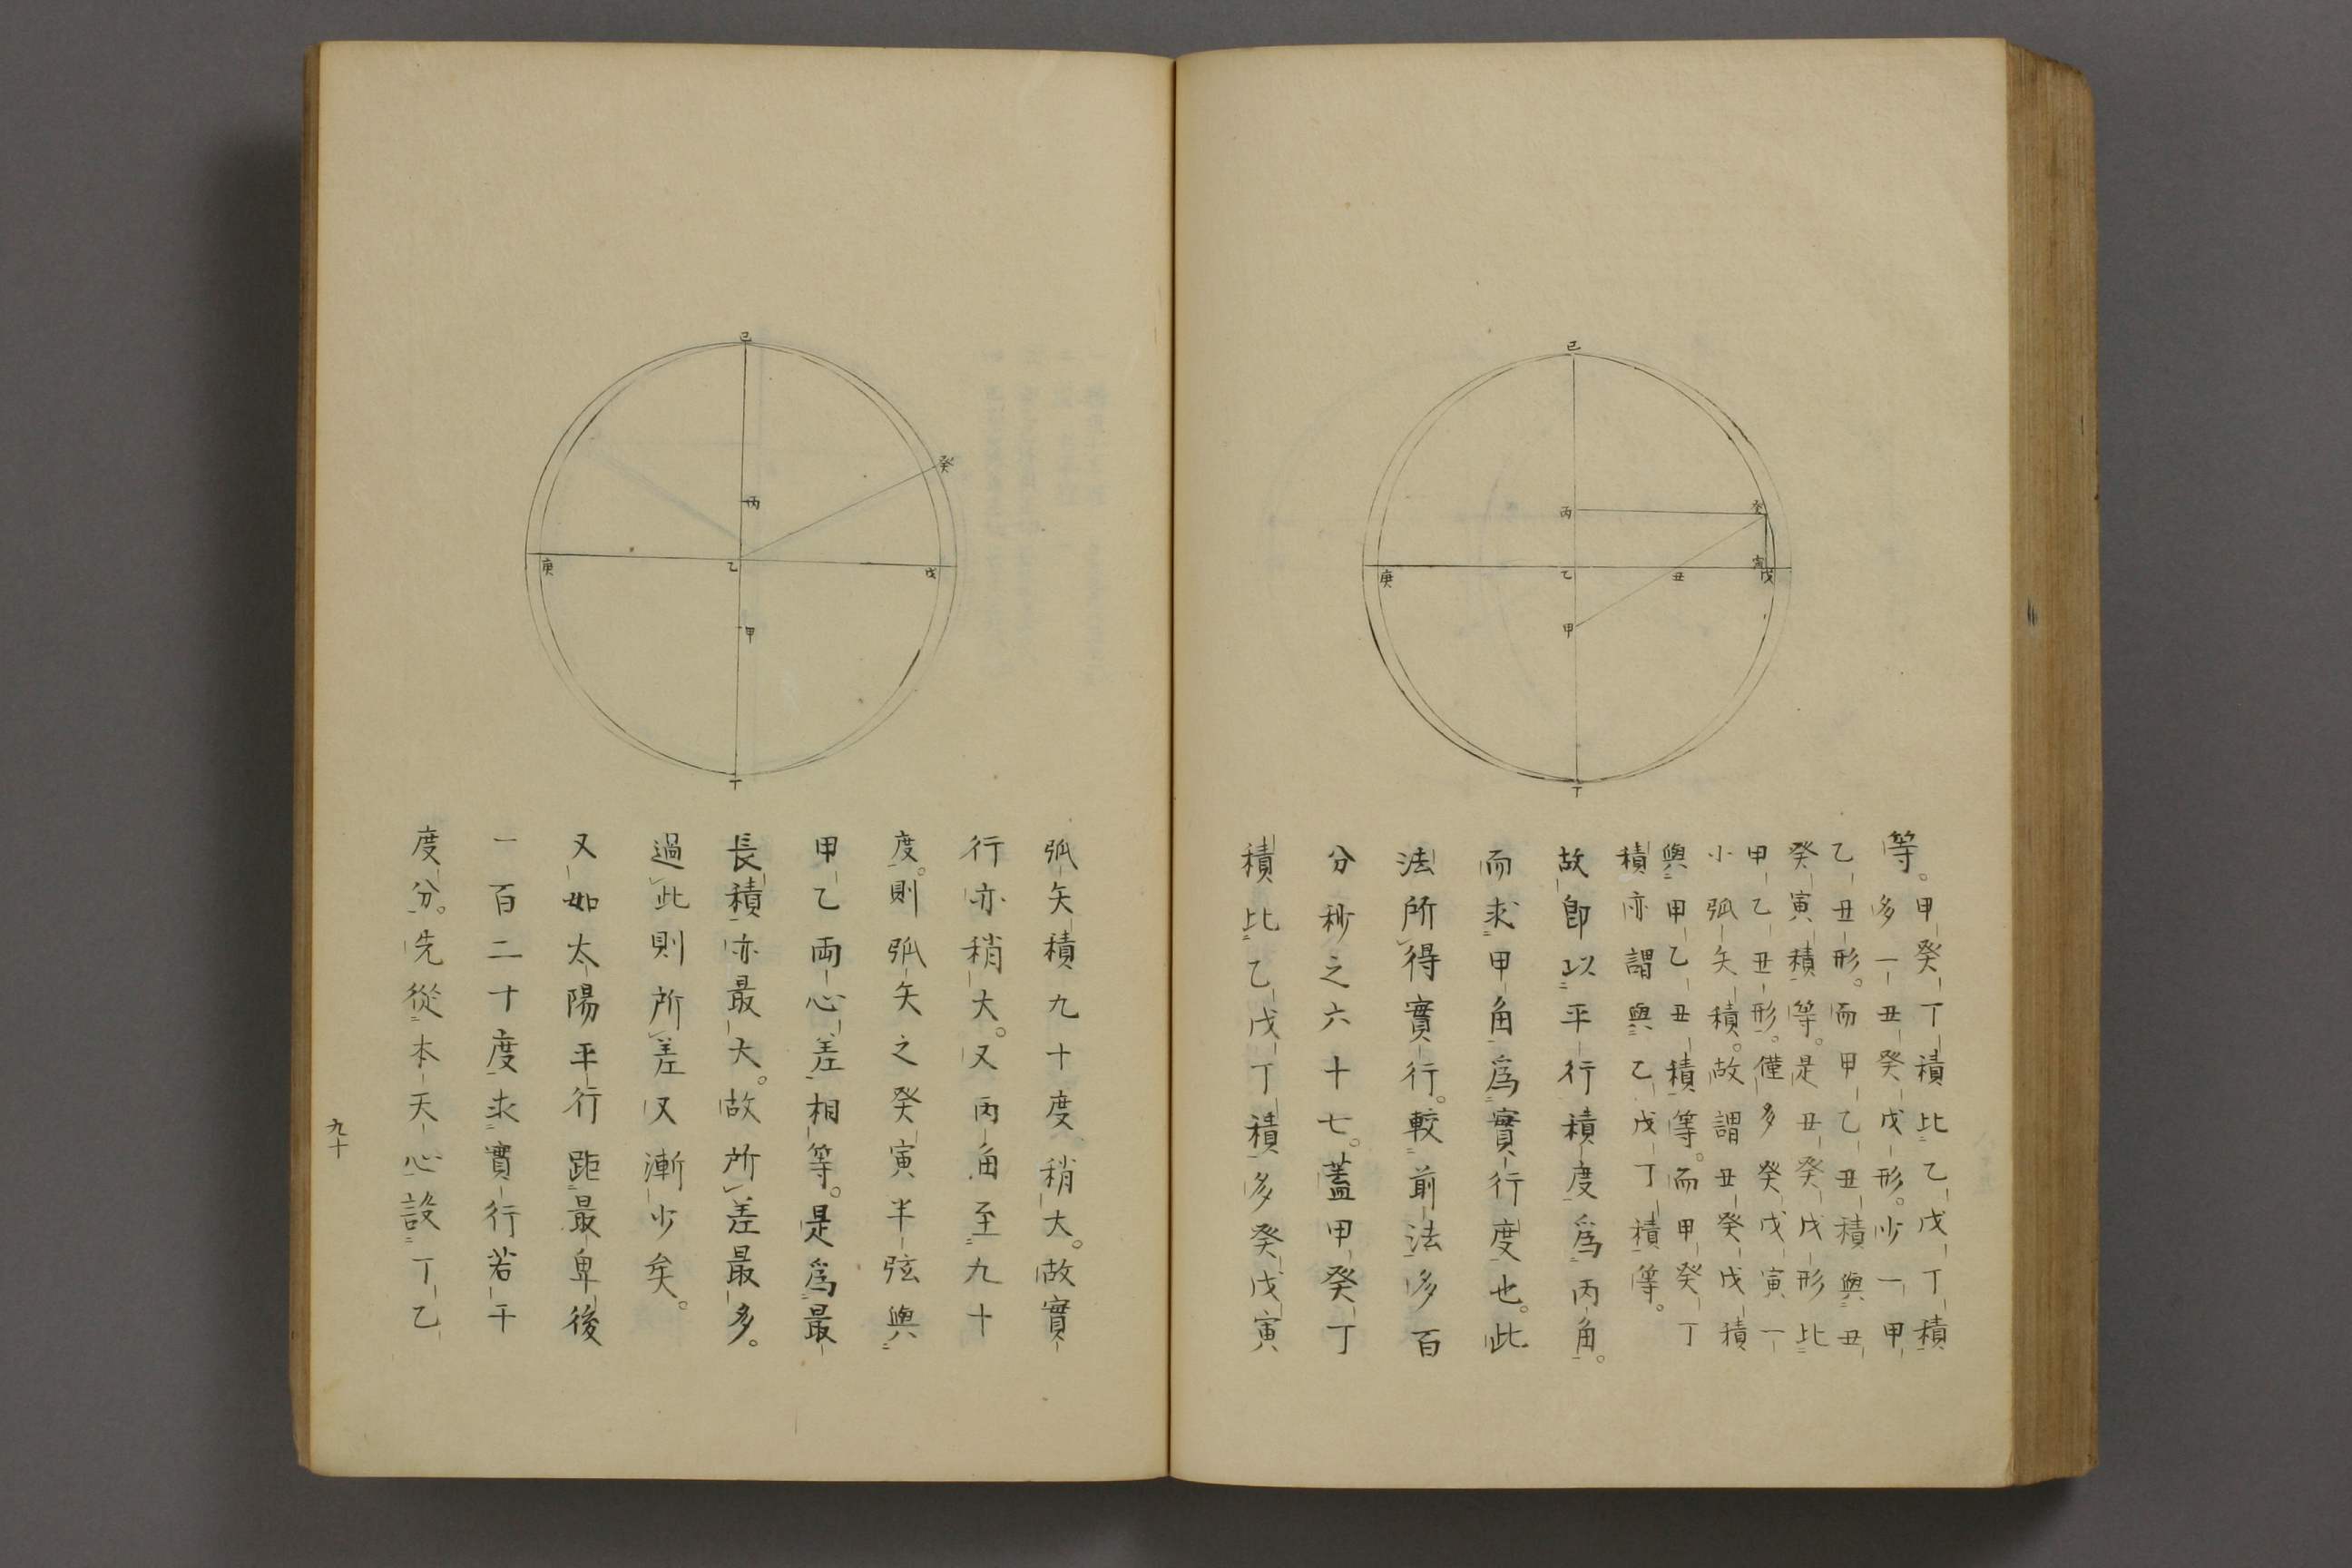 已
癸
丙
寅
戊
丑
乙
庚
甲
丁
等。
甲癸丁積比乙戊丁積
多一丑癸戊形。少一甲
乙丑形。而甲乙丑積與丑
癸寅積等。是丑癸戊形比
甲乙丑形。僅多癸戊寅一
小弧矢積。故謂丑癸戊積
與甲乙丑積等。而甲癸丁
積亦謂與乙戊丁積等。
故卽以平行積度爲丙角。
而求甲角爲實行度也。此
法所得實行。較前法多百
分秒之六十七。蓋甲癸丁
積比乙戊丁積多癸戊寅
已
癸
丙
戊
乙
庚
甲
丁
弧矢積九十度稍大。故實
行亦稍大。又丙角至九十
度。則弧矢之癸寅半弦與
甲乙兩心差相等。是爲最
長積亦最大。故所差最多。
過此則所差又漸少矣。
又如太陽平行距最卑後
一百二十度求實行若干
度分。先從本天心設丁乙
九十